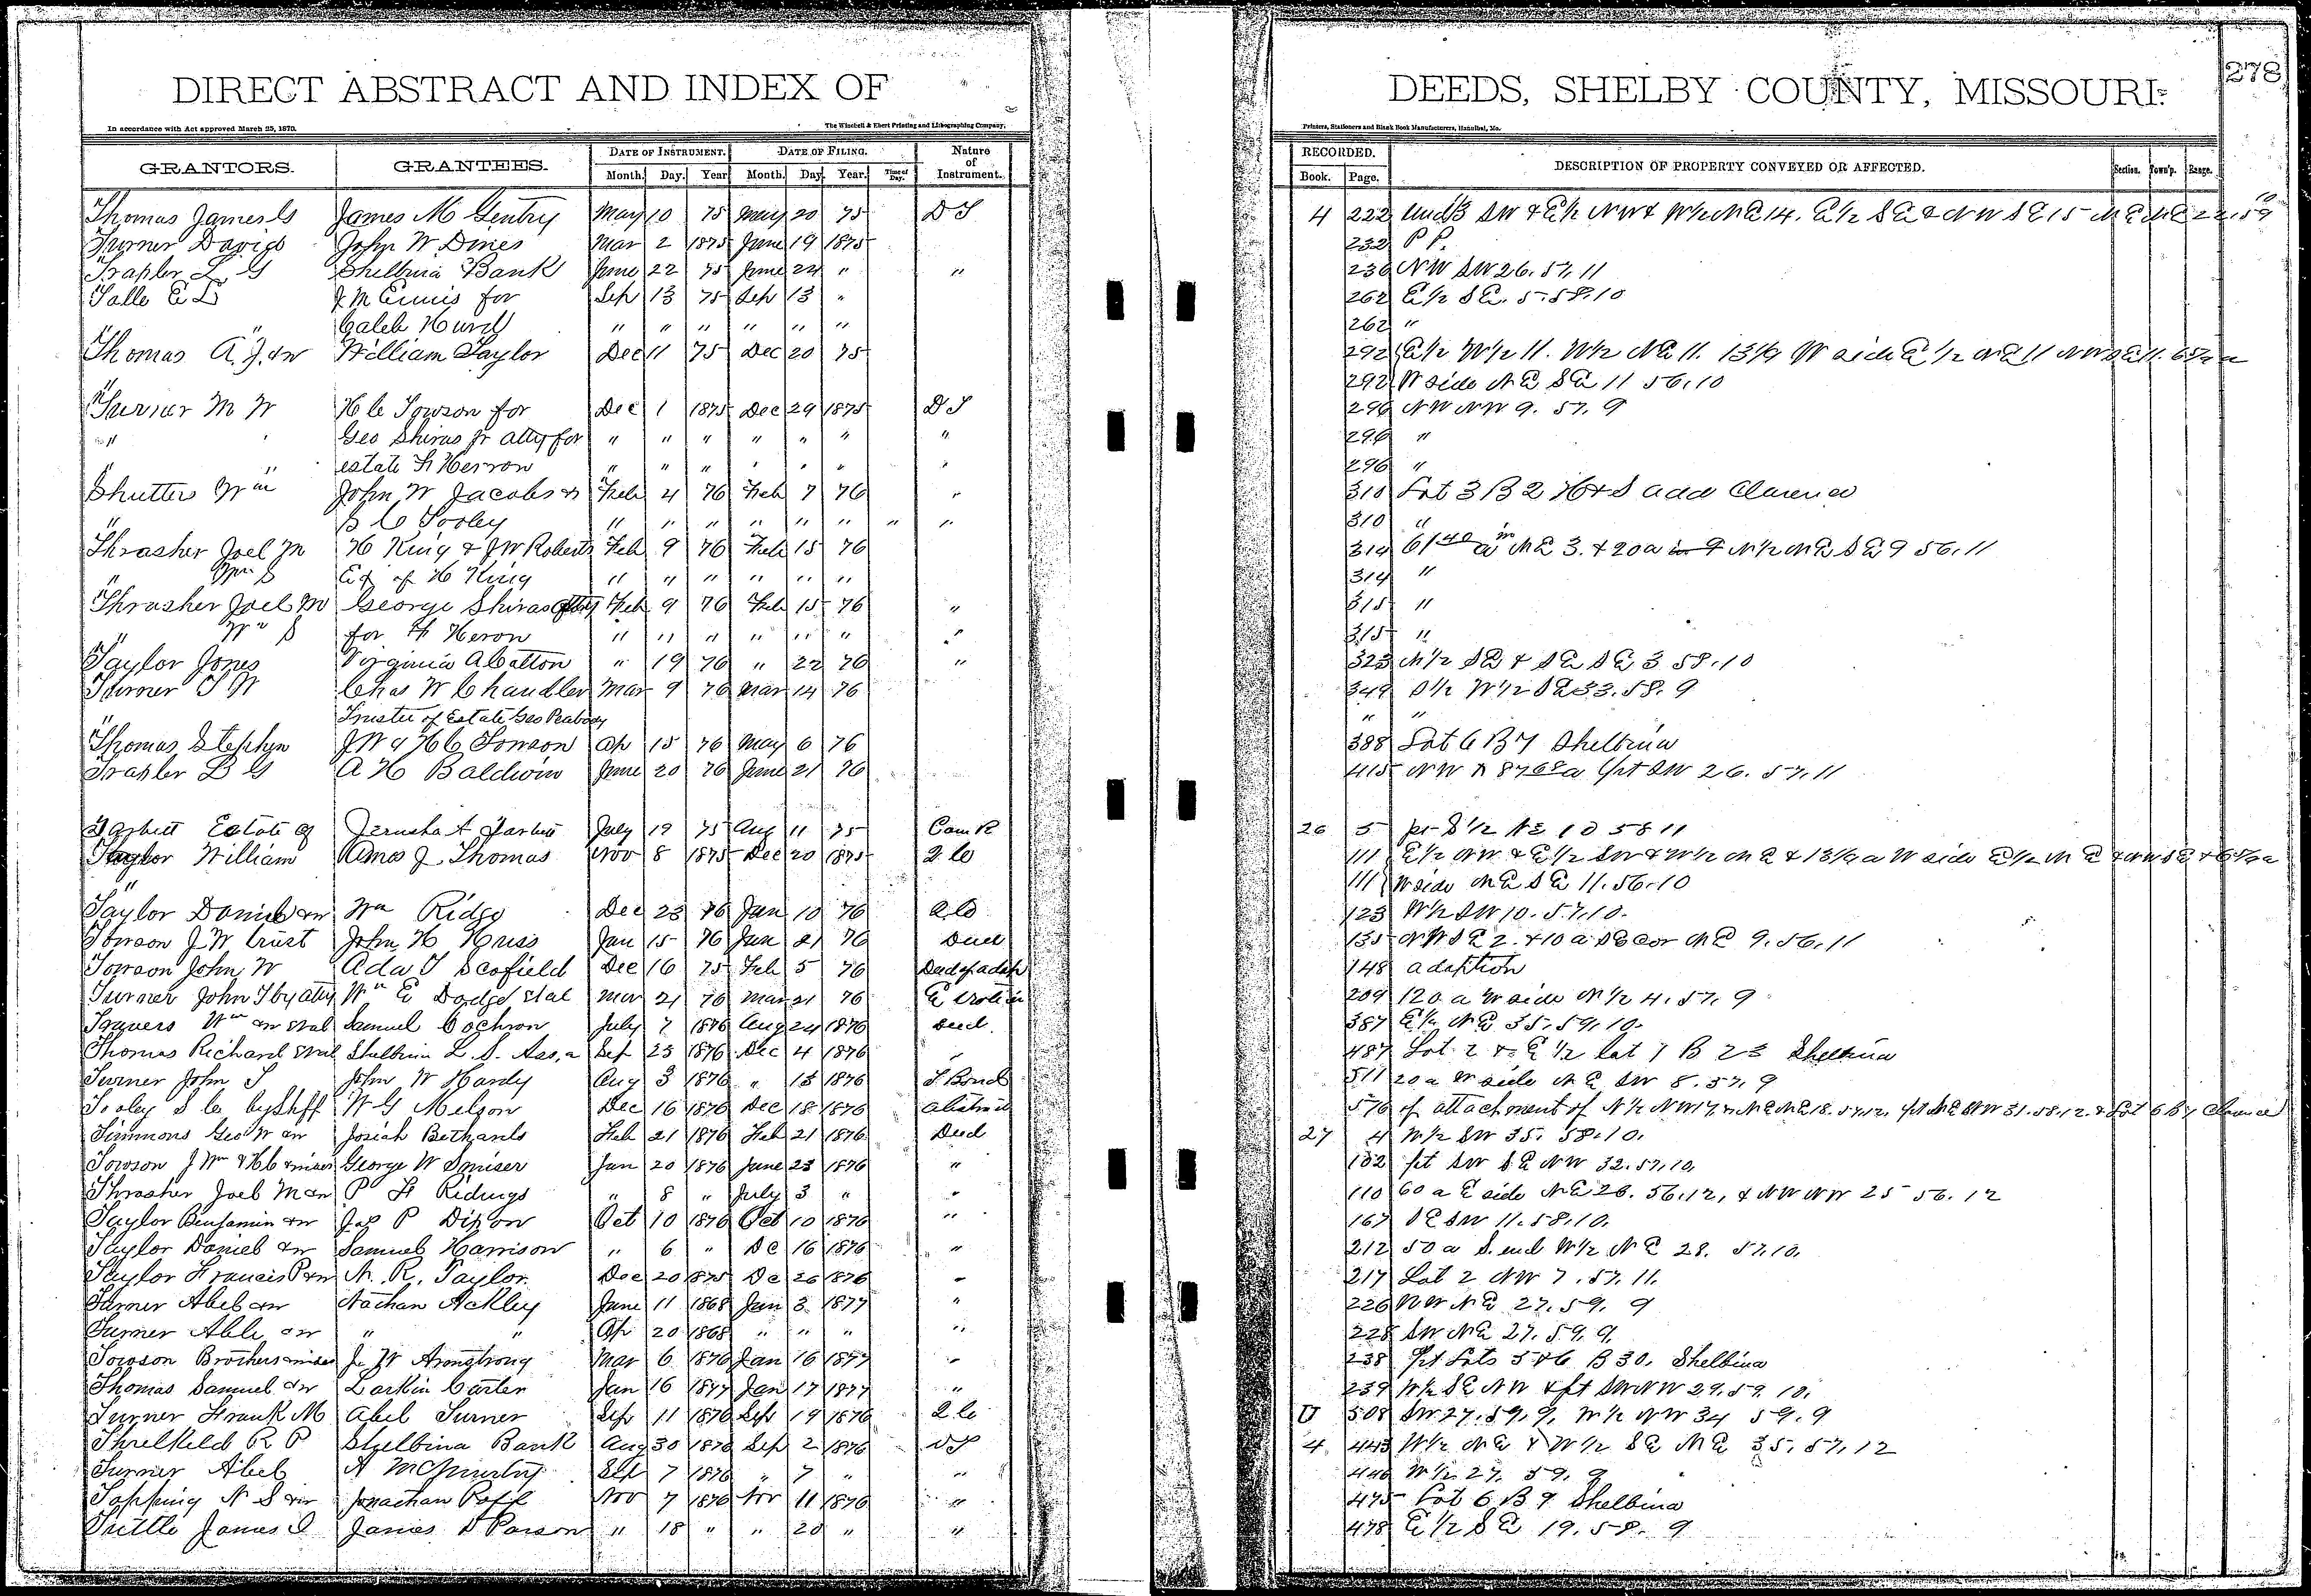 DIRECT ABSTRACT AND INDEX OF DEEDS, SHELBY COUNTY, MISSOURI. 278
In accordance with Act approved March 25, 1870. The Winchell & Ebert Printing and Lithographing Company, Printers, Stationers and Blank Book Manufacturers, Hannibal, Mo.
GRANTORS. GRANTEES. DATE OF INSTRUMENT. DATE OF FILING. Nature of Instrument. RECORDED. DESCRIPTION OF PROPERTY CONVEYED OR AFFECTED. Section. Town'p. Range.
Month. Day. Year. Month. Day. Year. Time of Day. Book. Page.
Thomas James G James M Gentry May 10 75 May 20 75 D T 4 222 Und 1/3 SW & E 1/2 NW & W 1/2 NE 14. E 1/2 SE & NW SE 15 NE NE 22. 59 10
Turner David John W Dines Mar 2 1875 June 19 1875 232 P P.
Trapler L G Shelbina Bank June 22 75 June 24 " " 236 NW SW 26. 57. 11
Talle E D J M Ennis for Sep 13 75 Sep 13 " 262 E 1/2 SE. 5. 58. 10
" " Caleb Hurd " " " " " " 262 "
Thomas A. J. & w William Taylor Dec 11 75 Dec 20 75 292 E 1/2 W 1/2 11. W 1/2 NE 11. 13 1/9 W side E 1/2 NE 11 NW SE 11.
" 292 W side NE SE 11 56. 10
Turner M W H C Towson for Dec 1 1875 Dec 29 1875 D T 296 NW NW 9. 57. 9
" Geo Shiras Jr atty for " " " " " " " 296 "
" " estate F Herron " " " " " " " 296 "
Shutters Wm John W Jacobs & Feb 4 76 Feb 7 76 " 310 Lot 3 B 2 H & S add Clarence
" B C Tooley " " " " " " " " 310 "
Thrasher Joel M H King & J W Roberts Feb 9 76 Feb 15 76 314 61 40 a in NE 3. & 20 a N 1/2 NE SE 9 56. 11
" Wm S Ex of H King " " " " " " 314 "
Thrasher Joel M George Shiras atty Feb 9 76 Feb 15 76 " 315 "
" Wm S for F Heron " " " " " " " 315 "
Taylor Jones Virginia A Catton " 19 76 " 22 76 " 323 N 1/2 SE & SE SE 3 58. 10
Turner T W Chas W Chandler Mar 9 76 Mar 14 76 349 S 1/2 W 1/2 SE 33. 58. 9
" Trustee of Estate Geo Peabody " "
Thomas Stephen J W & H C Towson Ap 15 76 May 6 76 388 Lot 6 B 7 Shelbina
Trapler L G A H Baldwin June 20 76 June 21 76 415 NW & 87 68 a pt SW 26. 57. 11
Tarbett Estate of Jerusha A Tarbett July 19 75 Aug 11 75 Com R 26 5 pt S 1/2 NE 10 58 11
Taylor William Amos J Thomas Nov 8 1875 Dec 20 1875 Q C 111 E 1/2 NW & E 1/2 SW & W 1/2 NE & 13 1/9 a W side E 1/2 NE & NW SE
" 111 W side NE SE 11. 56. 10
Taylor Daniel & w Wm Ridge Dec 23 76 Jan 10 76 Q C 123 W 1/2 SW 10. 57. 10.
Towson J W trust John H Huss Jan 15 76 Jan 21 76 Deed 135 NW SE 2. & 10 a SE cor NE 9. 56. 11
Towson John W Ada T Scofield Dec 16 75 Feb 5 76 Deed of adop 148 adoption
Turner John T by atty Wm E Dodge et al Mar 21 76 Mar 21 76 209 120 a W side N 1/2 4. 57. 9
Travers Wm & w et al Samuel Cochron July 7 1876 Aug 24 1876 Deed. 387 E 1/2 NE 35. 59. 10.
Thomas Richard et al Shelbina L. S. Ass,n Sep 25 1876 Dec 4 1876 " 487 Lot 2 & E 1/2 lot 1 B 23 Shelbina
Turner John T John W Hardy Aug 3 1876 " 13 1876 T Bond 511 20 a W side NE SW 8. 57. 9
Tooley S C by Shff W G Melson Dec 16 1876 Dec 18 1876 abstract 576 of attachment of N 1/2 NW 17. & NE NE 18. 57. 12. pt NE NW 31. 58. 12. & Lot 6 B 7 Clarence
Timmons Geo W & w Josiah Bethards Feb 21 1876 Feb 21 1876 Deed 27 4 W 1/2 SW 35. 58. 10.
Towson J Wm & H C & wives George W Smiser Jan 20 1876 June 23 1876 " 102 pt SW SE NW 32. 57. 10.
Thrasher Joel M & w P H Ridings " 8 " July 3 " " 110 60 a E side NE 26. 56. 12, & NW NW 25 56. 12
Taylor Benjamin & w Jas P Dixon Oct 10 1876 Oct 10 1876 " 167 SE SW 11. 58. 10.
Taylor Daniel & w Samuel Harrison " 6 " De 16 1876 " 212 50 a S. end W 1/2 NE 28. 57. 10.
Taylor Francis P & w N. R. Taylor Dec 20 1875 De 26 1876 " 217 Lot 2 NW 7. 57. 11.
Turner Abel & w Nathan Ackley June 11 1868 Jan 3 1877 " 226 NW NE 27. 59. 9
Turner Able & w " " Ap 20 1868 " " " " 228 SW NE 27. 59. 9.
Towson Brothers & wives J. W Armstrong Mar 6 1876 Jan 16 1877 " 238 pt Lots 5 & 6 B 30. Shelbina
Thomas Samuel & w Larkin Carter Jan 16 1877 Jan 17 1877 " 239 W 1/2 SE NW & pt SW NW 29. 59. 10.
Turner Frank M Abel Turner Sep 11 1876 Sep 19 1876 Q C U 508 SW 27. 59. 9. W 1/2 NW 34 59. 9
Threlkeld R P Shelbina Bank Aug 30 1876 Sep 2 1876 D T 4 443 W 1/2 NE & W 1/2 SE NE 35. 57. 12
Turner Abel A McMurtry Sep 7 1876 " 7 " " 446 W 1/2 27. 59. 9
Topping N S & w Jonathan Poff Nov 7 1876 Nov 11 1876 " 475 Lot 6 B 9 Shelbina
Tuttle James I James D Parson " 18 " " 20 " " 478 E 1/2 SE 19. 58. 9